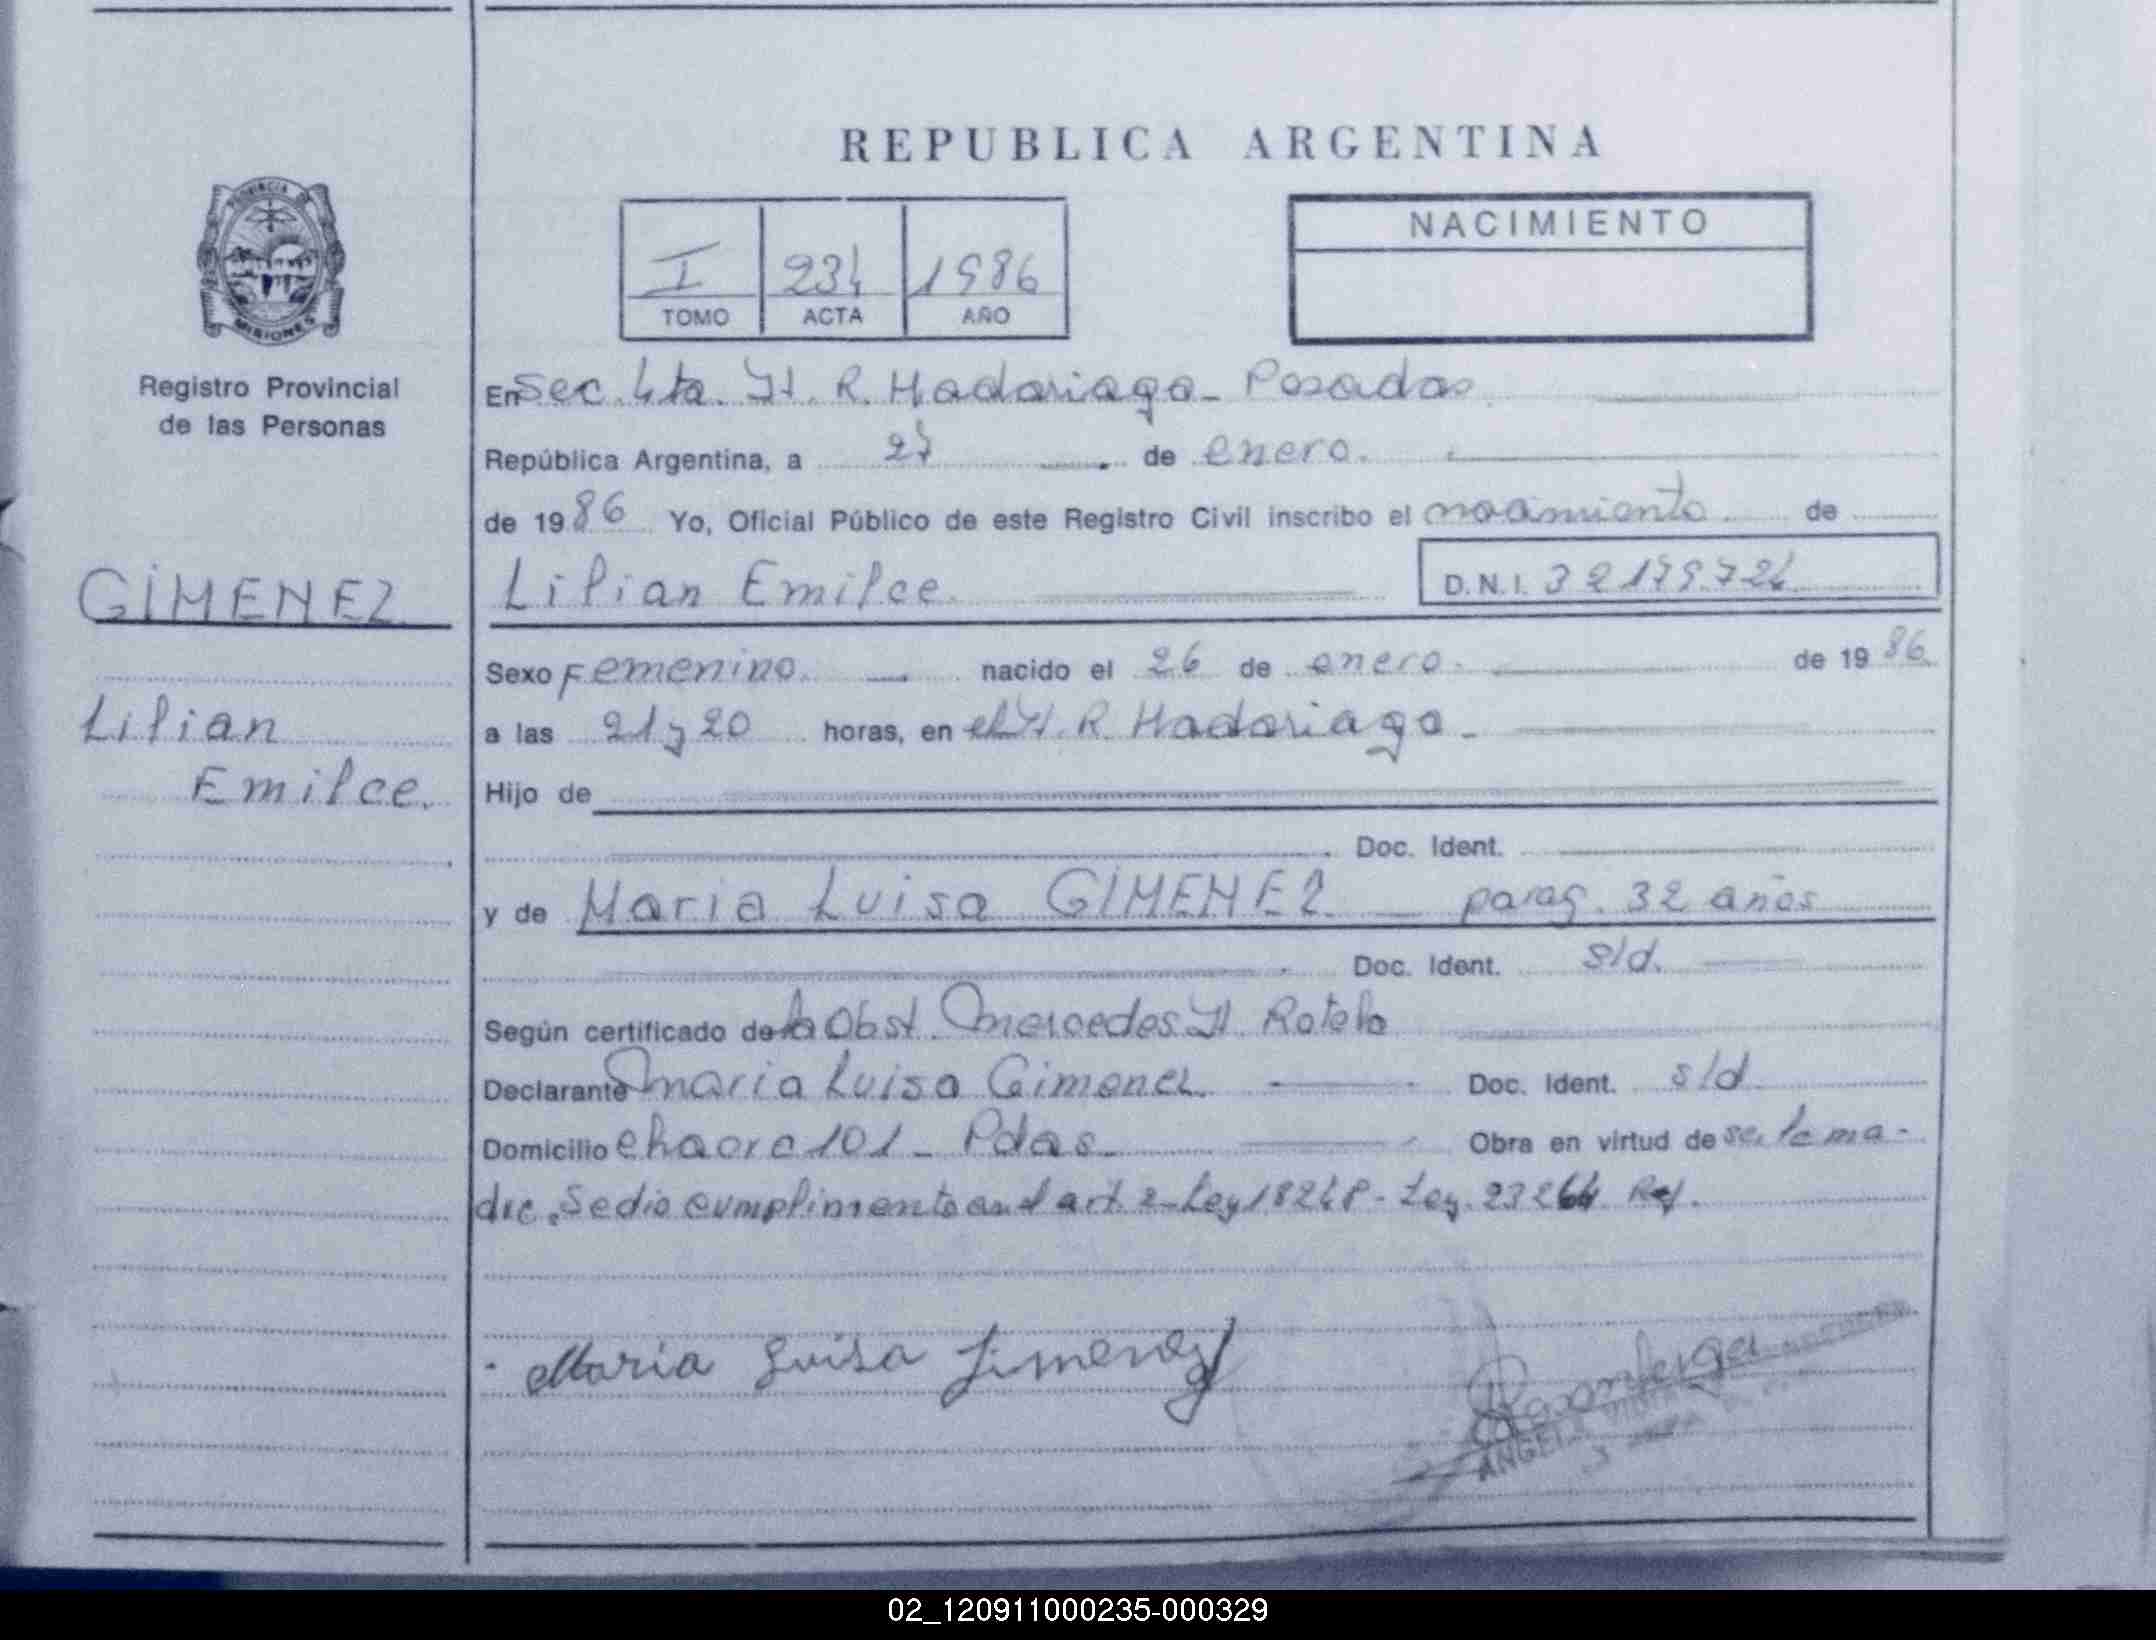 REPUBLICA ARGENTINA
PROVINCIA DE MISIONES
Registro Provincial
de las Personas
I 234 1986
TOMO ACTA AÑO
NACIMIENTO
En Sec. 4ta. H. R. Madariaga - Posadas
República Argentina, a 27 de enero.
de 1986 Yo, Oficial Público de este Registro Civil inscribo el nacimiento de
GIMENEZ
Lilian Emilce.
Lilian Emilce. D.N.I. 32.179.724
Sexo Femenino. nacido el 26 de enero. de 1986.
a las 21 y 20 horas, en el H. R. Madariaga.
Hijo de
Doc. Ident.
y de Maria Luisa GIMENEZ parag. 32 años
Doc. Ident. s/d.
Según certificado de la Obst. Mercedes H. Rotela
Declarante Maria Luisa Gimenez. Doc. Ident. s/d
Domicilio chacra 101 - Pdas. Obra en virtud de ser la ma-
dre. Se dio cumplimento an el art. 2 - Ley 18248 - Ley. 23264 Ref.
Maria Luisa Jimenez
ANGELA
02_120911000235-000329